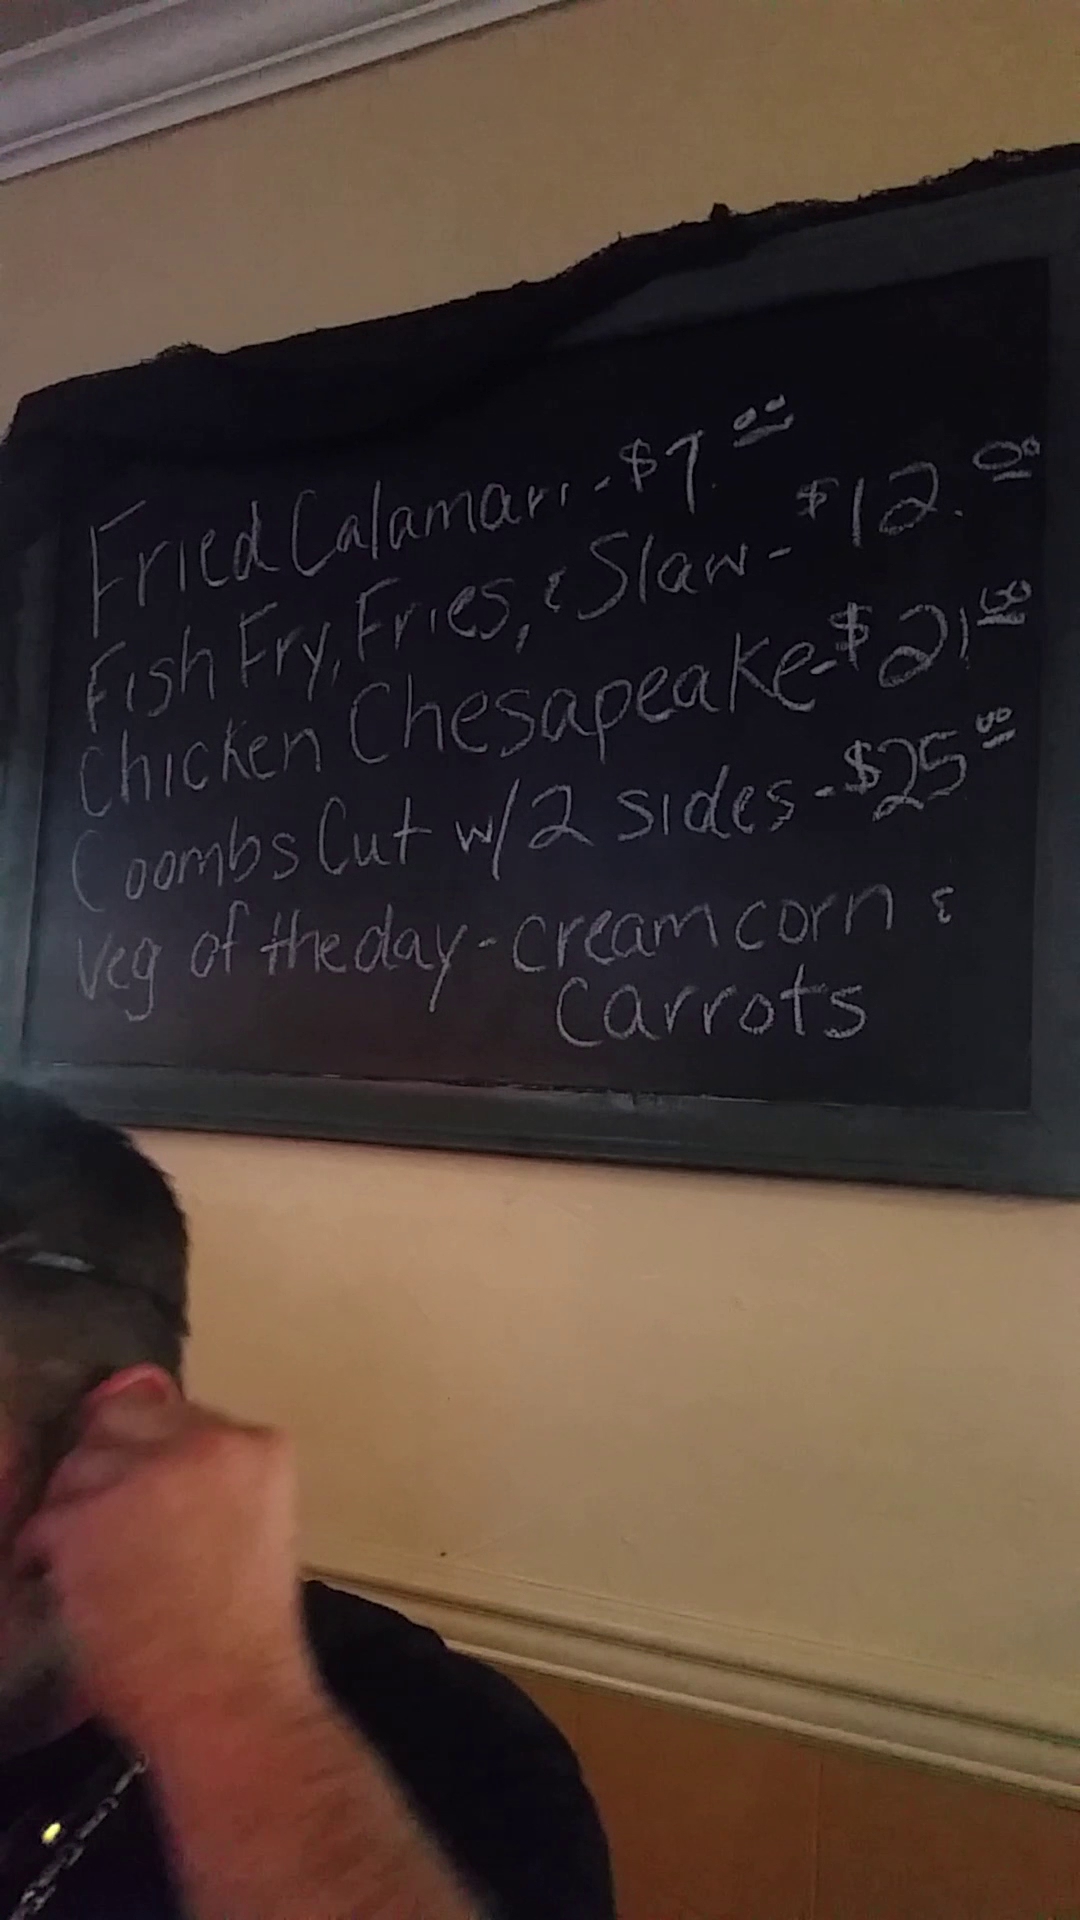 Fried Calamari - $7.00
Fish Fry, Fries, & Slaw - $12.00
Chicken Chesapeake - $21.00
Coombs Cut w/2 sides - $25.00
Veg of the day - cream corn &
Carrots